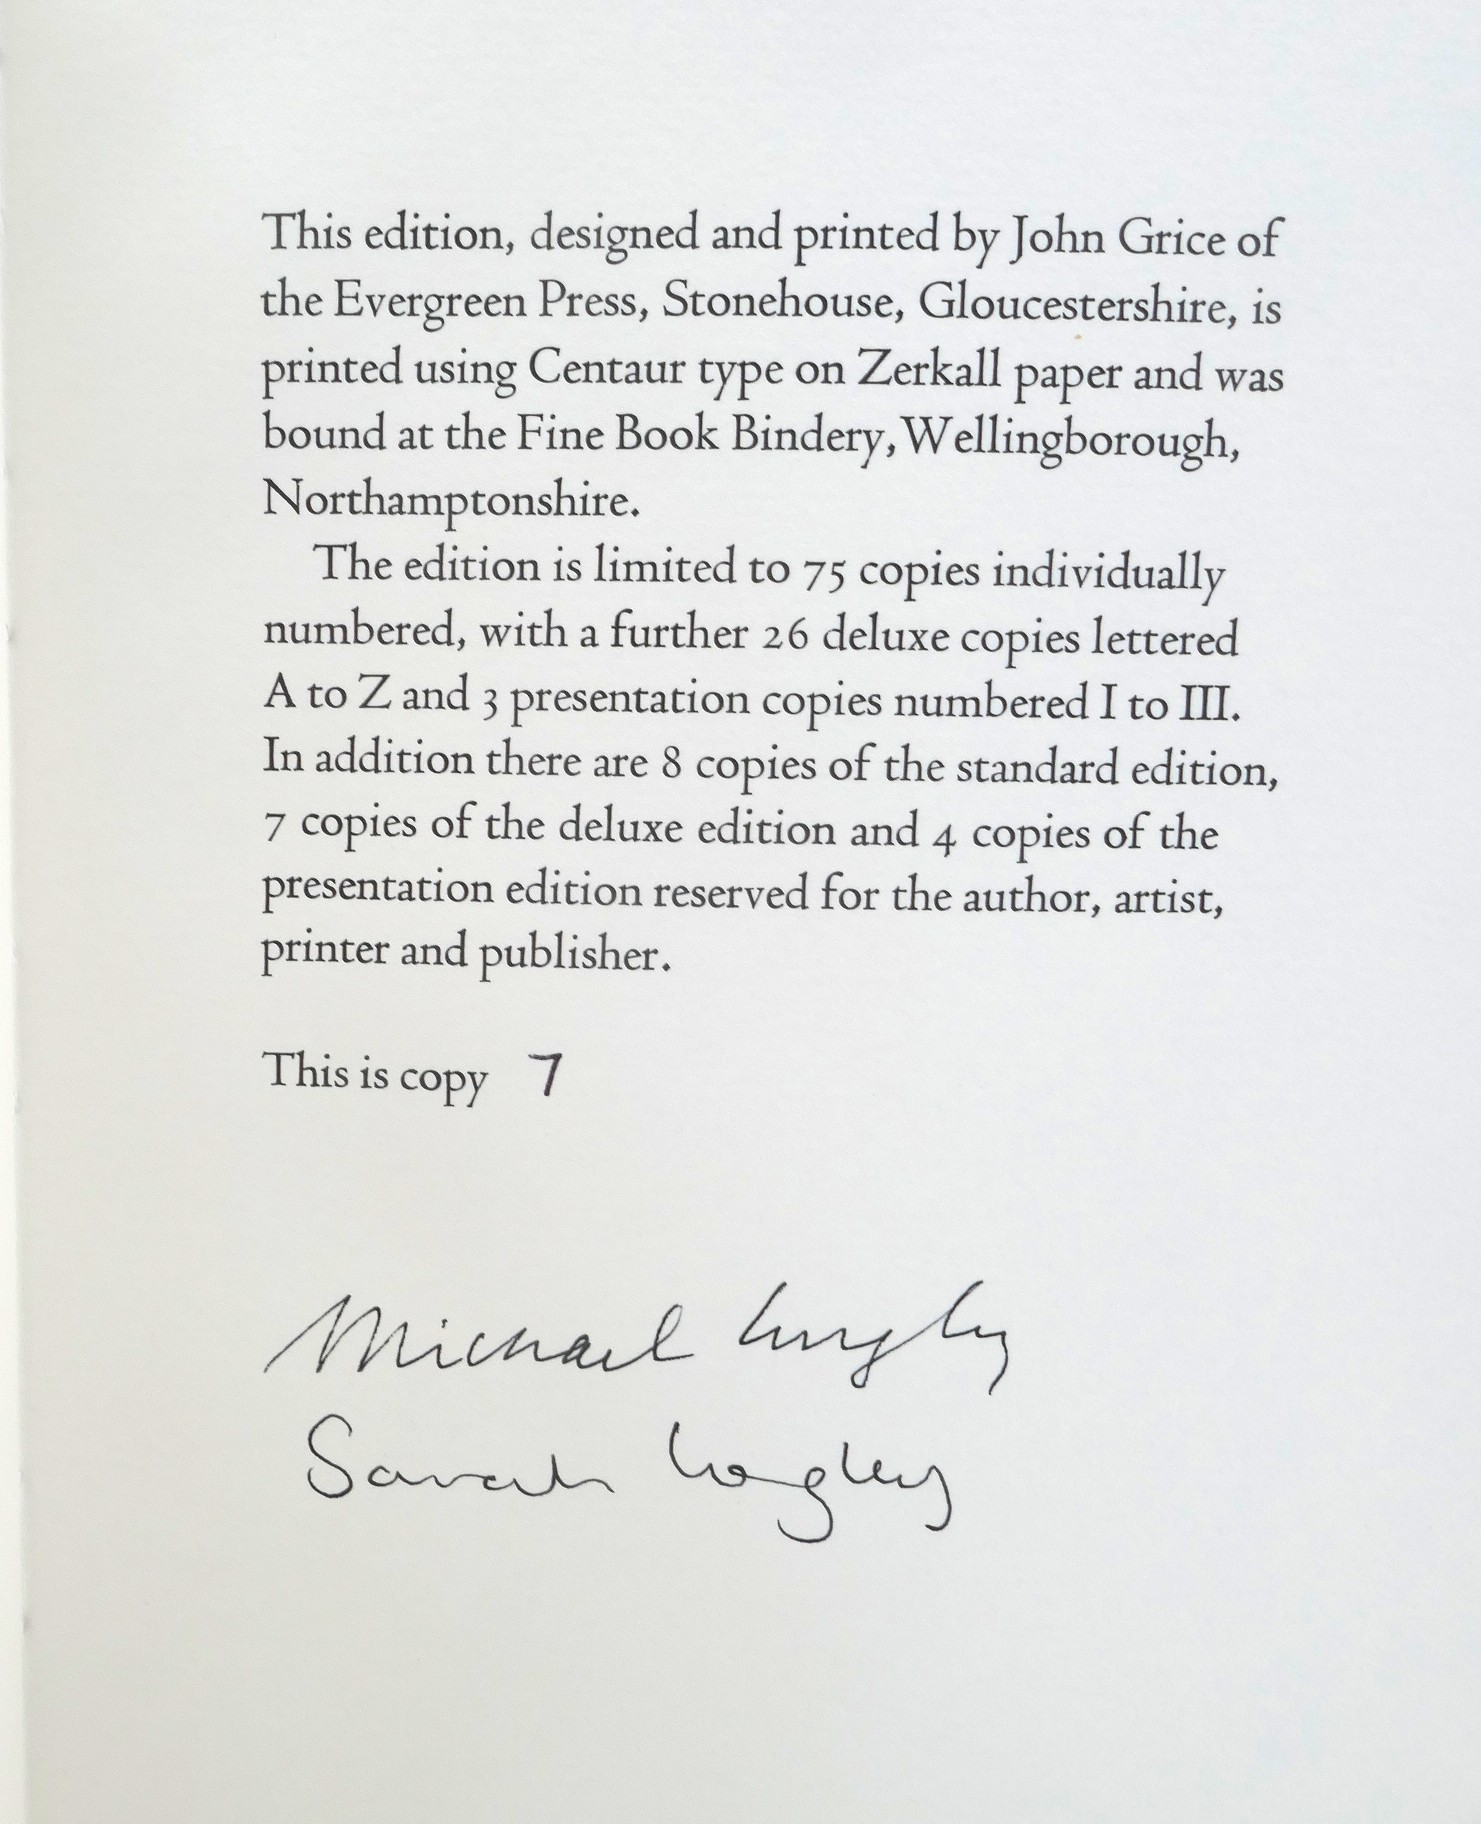 This edition, designed and printed by John Grice of
the Evergreen Press, Stonehouse, Gloucestershire, is
printed using Centaur type on Zerkall paper and was
bound at the Fine Book Bindery, Wellingborough,
Northamptonshire.
The edition is limited to 75 copies individually
numbered, with a further 26 deluxe copies lettered
A to Z and 3 presentation copies numbered I to III.
In addition there are 8 copies of the standard edition,
7 copies of the deluxe edition and 4 copies of the
presentation edition reserved for the author, artist,
printer and publisher.
This is copy 7
Michael Longley
Sarah Longley